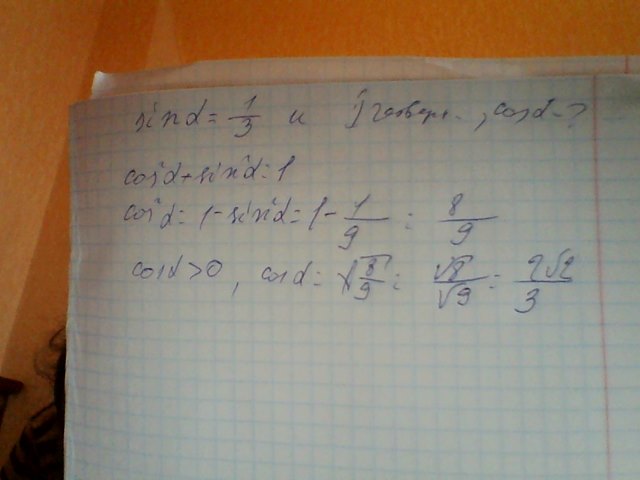 sin α = 1/3 и I четверт. , cos α - ?
cos²α + sin²α = 1
cos²α = 1 - sin²α = 1 - 1/9 = 8/9
cos α > 0 , cos α = √8/9 = √8/√9 = 2√2/3